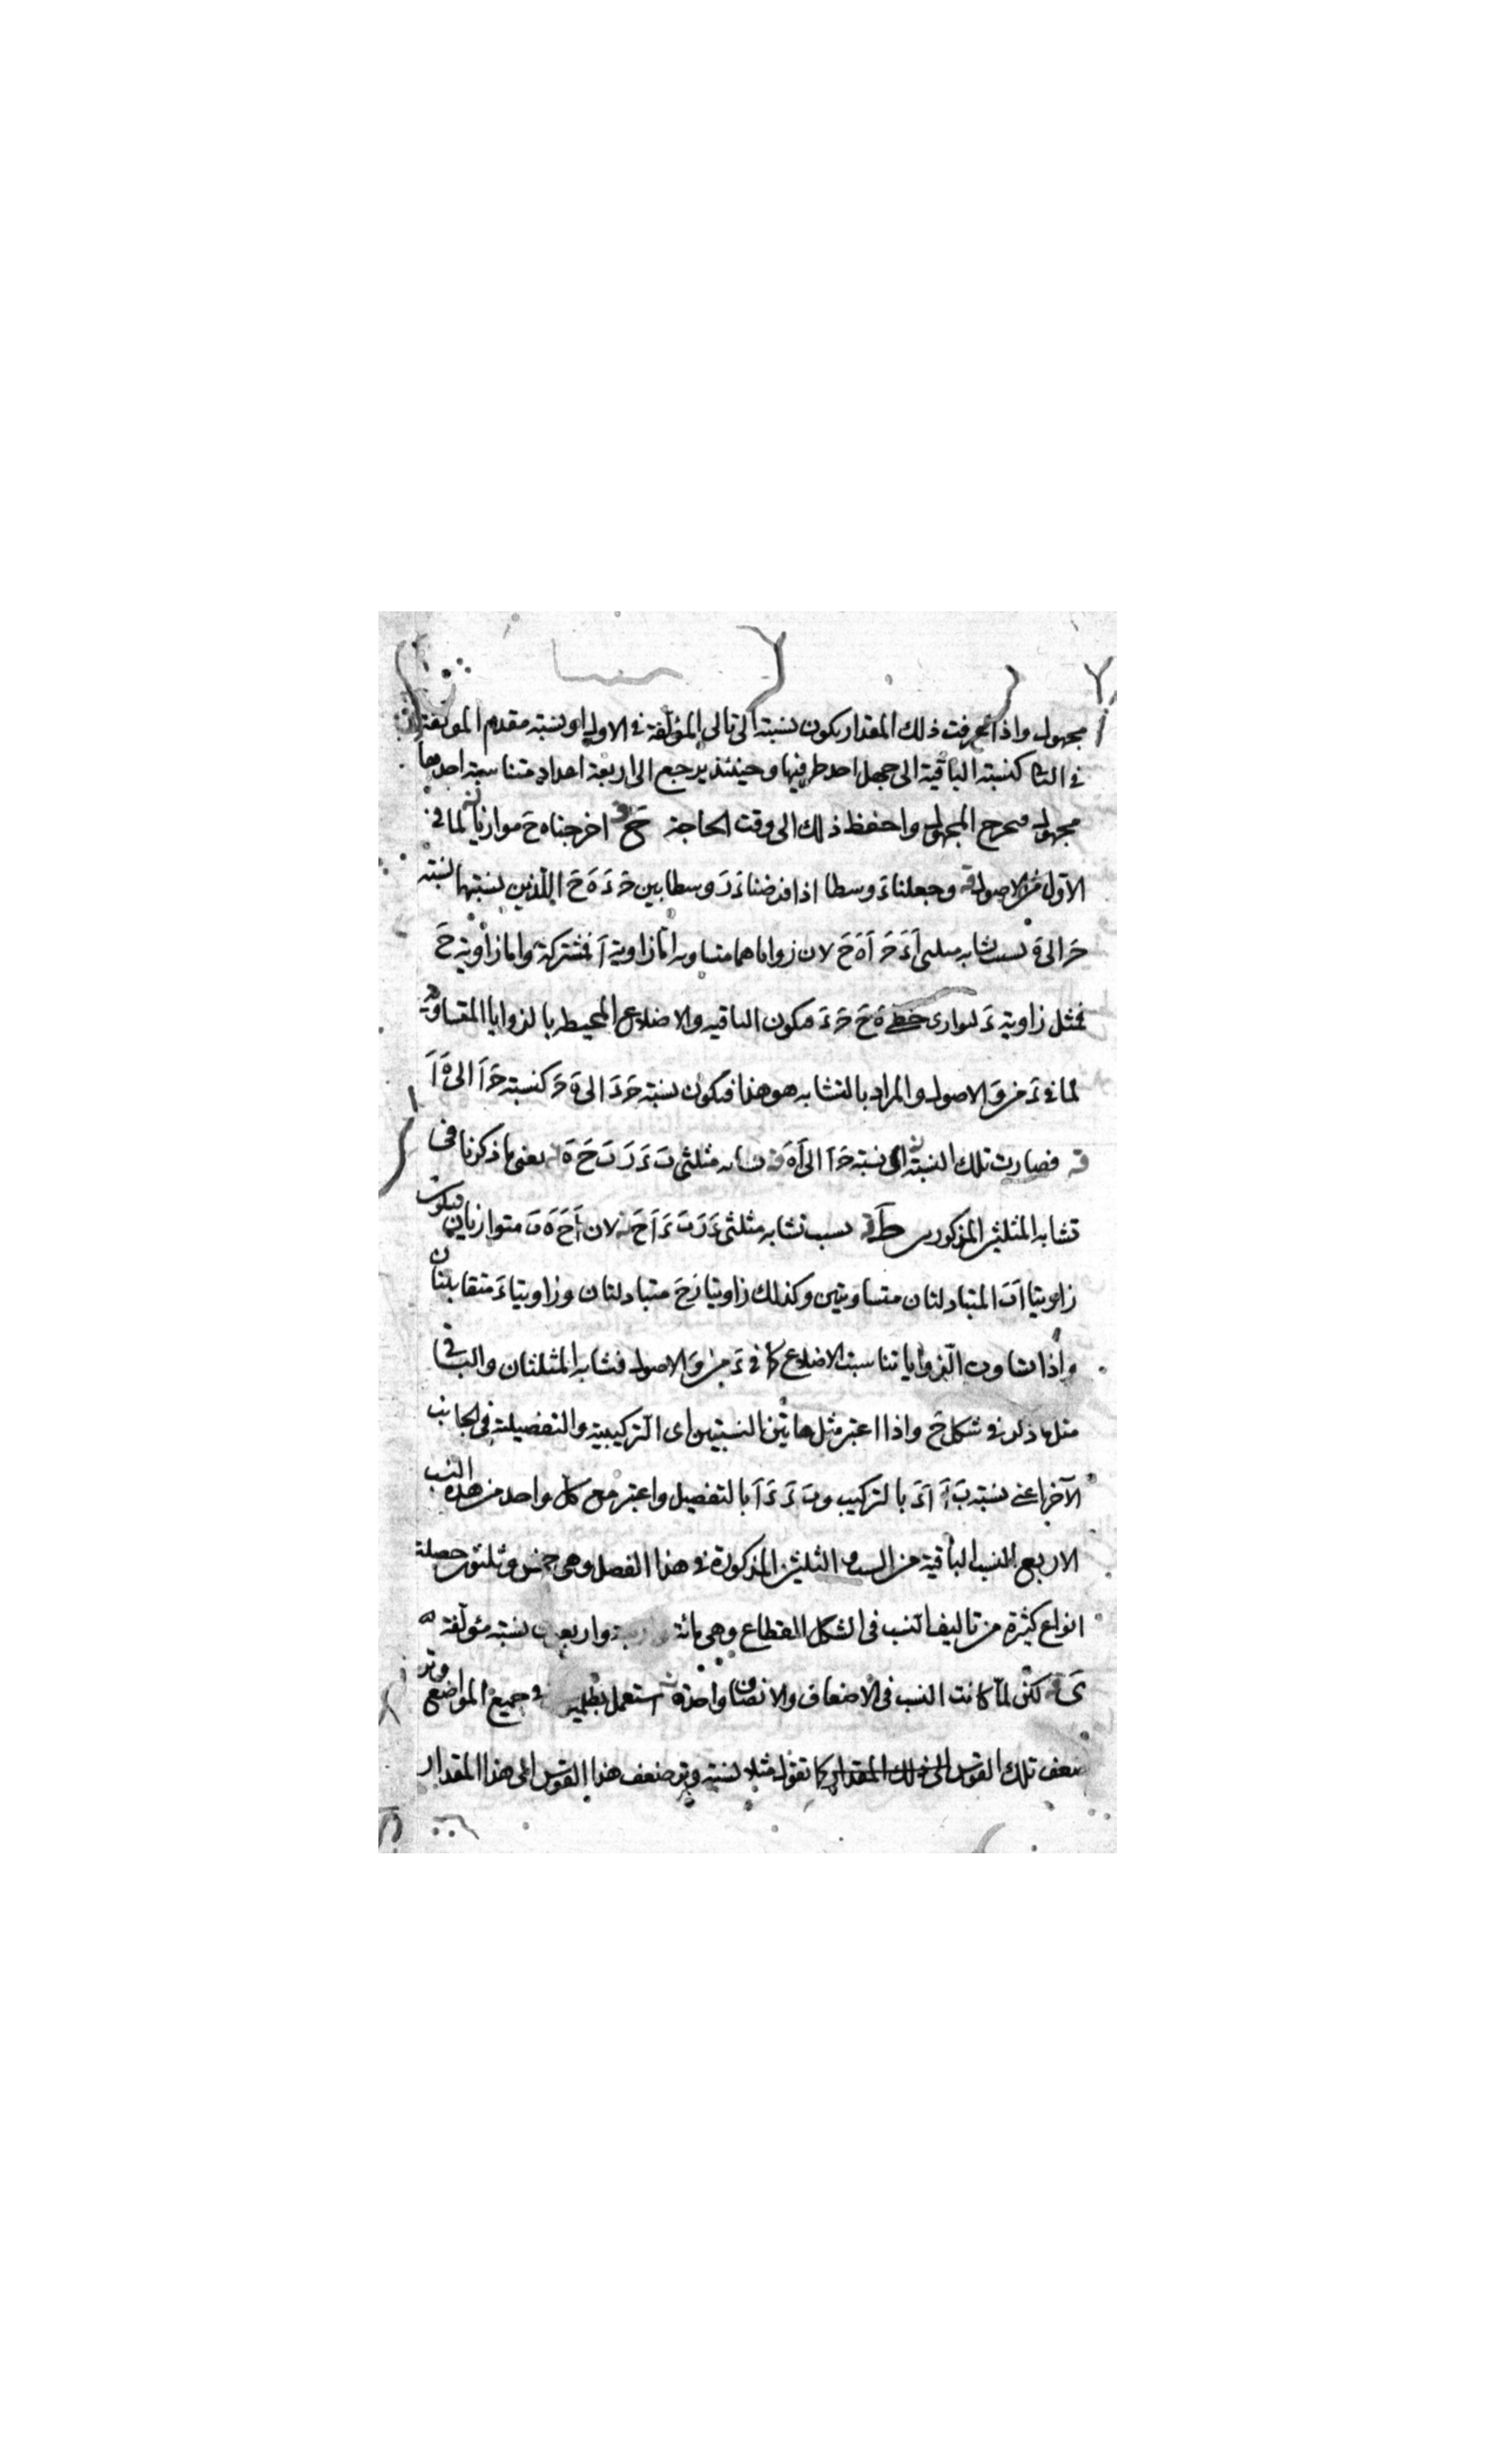 مجهول واذا عرفت ذلك المقدار يكون نسبته الى تالى المؤلفة فى الاول او نسبته مقدم المؤلفة
فى الثا كنسبته الباقية الى جهل احد طرفيها وحينئذ يرجع الى اربعة اعداد متناسبة احدها
مجهول فيخرج المجهول واحفظ ذلك الى وقت الحاجة ح قه اخرجناه ح موازيا لما فى
الاول من الاصول قه وجعلنا ءَ وسطا اذا فرضنا ءَ رَ وسطا بين حَ ءَ هَ حَ اللذين نسبتها نسبته
حَ الى هَ بسبب تشابه مثلثى اَ ءَ حَ اَ هَ حَ لان زواياهما متساويه اما زاوية اَ فمشتركة واما زاوية حَ
فمثل زاوية ءَ لتوازى خطى هَ حَ حَ ءَ فيكون الباقيه والاضلاع المحيطه بالزوايا المتساوية
لما فى ءَ من وَ الاصول والمراد بالتشابه هو هذا فيكون نسبته حَ ءَ الى هَ حَ كنسبته حَ اَ الى هَ اَ
قه فصارت تلك النسبة الى نسبته حَ اَ الى اَ هَ قه تشابه مثلثى بَ ءَ رَ بَ حَ هَ يعنى ما ذكرنا فى
تشابه المثلثين المذكورين طَ قه بسبب تشابه مثلثى ءَ رَ بَ ءَ اَ حَ لان اَ حَ هَ بَ متوازيان فيكون
زاويتا اَ بَ المتبادلتان متساويتين وكذلك زاويتا رَ حَ متبادلتان وزاويتا ءَ متقابلتان
واذا تساوت الزوايا تناسبت الاضلاع كما فى ءَ من وَ الاصول فتشابه المثلثان والباقى
مثل ما ذكر فى شكل حَ واذا اعتبر مثل هاتين النسبتين اى التركيبية والتفصيلية فى الجانب
الآخر اعنى نسبته بَ اَ اَ ءَ بالتركيب و بَ ءَ ءَ اَ بالتفصيل واعتبر مع كل واحد من هذه النسب
الاربع النسب الباقية من النسب الثلثين المذكورة فى هذا الفصل وهى خمس وثلثون حصلت
انواع كثيرة من تاليف النسب فى الشكل القطاع وهى مائة واربعون نسبته مؤلفة
ىَ قه لكن لما كانت النسب فى الاضعاف والانصاف واحدة استعمل بطلميوس فى جميع المواضع وتر
ضعف تلك القوس الى ذلك المقدار كما تقول مثلا نسبته وتر ضعف هذا القوس الى هذا المقدار